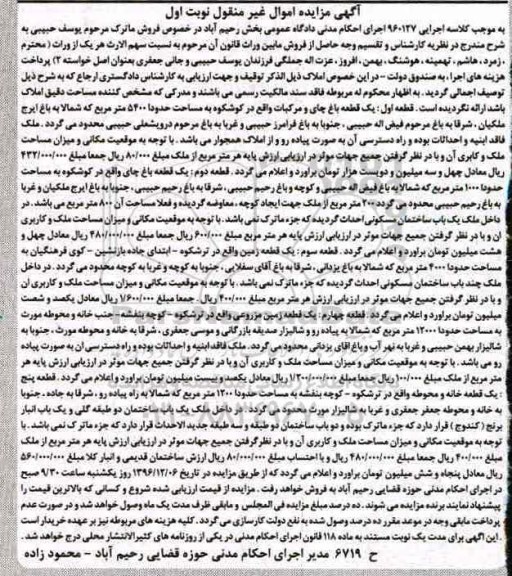 آگهی مزایده اموال غیر منقول نوبت اول
به موجب کلاسه اجرایی ۹۶۰۱۳۷ اجرای احکام مدنی دادگاه عمومی بخش رحیم آباد در خصوص فروش ماترک مرحوم یوسف حبیبی به
شرح مندرج در نظریه کارشناس و تقسیم وجه حاصل از فروش مابین وراث قانون آن مرحوم به نسبت سهم الارث هر یک از وراث ( محترم
، زمرد ، هاشم ، تهمینه ، هوشنگ ، بهمن ، افروز ، عزت اله جملگی فرزندان یوسف حبیبی و جانی جعفری بعنوان اصل خواسته ۲) پرداخت
هزینه های اجرا ، به صندوق دولت – در این خصوص املاک ذیل الذکر توقیف و جهت ارزیابی به کارشناس دادگستری ارجاع که به شرح ذیل
توصیف اجمالی گردید . به اظهار محکوم له مربوطه فاقد سند مالکیت رسمی می باشند و مدرکی که مشخص کننده مساحت دقیق املاک
باشد ارائه نگردیده است . قطعه اول : یک قطعه باغ چای و مرکبات واقع در کوشکوه به مساحت حدودا ۵۴۰۰ متر مربع که شمالا به باغ ایرج
ملکیان ، شرقا به باغ مرحوم فیض اله حبیبی . جنوبا به باغ فرامرز حبیبی و غربا به باغ مرحوم درویشعلی حبیبی محدود می گردد . ملک
فاقد ابنیه و احداثات بوده و راه دسترسی آن به صورت پیاده رو و از املاک همجوار می باشد . با توجه به موقعیت مکانی و میزان مساحت
ملک و کاربری آن و با در نظر گرفتن جمیع جهات موثر در ارزیابی ارزش پایه هر متر مربع از ملک ۸۰/۰۰۰ ریال جمعا مبلغ ۴۳۲/۰۰۰/۰۰۰
ریال معادل چهل و سه میلیون و دویست هزار تومان براورد و اعلام می گردد . قطعه دوم : یک قطعه باغ چای واقع در کوشکوه به مساحت
حدودا ۱۰۰۰ متر مربع که شمالا به باغ فیض اله حبیبی و کوچه و باغ رحیم حبیبی , شرقا به باغ رحیم حبیبی , جنوبا به باغ ایرج ملکیان و غربا
به باغ رحیم حبیبی محدود می گردد ۲۰۰ متر مربع از ملک جهت ایجاد کوچه ، معاوضه گردیده و فعلا مساحت آن ۸۰۰ متر مربع می باشد . در
داخل ملک یک باب ساختمان مسکونی احداث گردیده که جزء ماترک نمی باشد . با توجه به موقعیت مکانی و میزان مساحت ملک و کاربری
ان و با در نظر گرفتن جمیع جهات موثر در ارزیابی ارزش پایه هر متر مربع مبلغ ۶۰۰/۰۰۰ ریال جمعا مبلغ ۴۸۰/۰۰۰/۰۰۰ ریال معادل چهل و
هشت میلیون تومان براورد و اعلام می گردد . قطعه سوم : یک قطعه زمین واقع در ترشکوه – ابتدای جاده بازنشین – کوی فرهنگیان به
مساحت حدودا ۴۰۰۰ متر مربع که شمالا به باغ یزدانی ، شرقا به باغ آقای سفلایی ، جنوبا به کوچه و غربا به کوچه محدود می گردد . در داخل
ملک چند باب ساختمان مسکونی احداث گردیده که جزء ماترک نمی باشد . با توجه به موقعیت مکانی و میزان مساحت ملک و کاربری ان
و با در نظر گرفتن جمیع جهات موثر در ارزیابی ارزش هر متر مربع مبلغ ۴۰۰/۰۰۰ ریال . جمعا مبلغ ۱/۶۰۰/۰۰۰/۰۰۰ ریال معادل یکصد و شصت
میلیون تومان براورد و اعلام می گردد . قطعه چهارم : یک قطعه زمین مزروعی واقع در ترشکوه – کوچه بنفشه – جنب خانه و محوطه مورث
به مساحت حدودا ۱۲۰۰۰ متر مربع که شمالا به پیاده رو و شالیزار صدیقه بازرگانی و موسی جعفری ، شرقا به خانه و محوطه مورث ، جنوبا به
شالیزار بهمن حبیبی و غربا به نهر آب و باغ اقای یزدانی محدود می گردد . ملک فاقد ابنیه و احداثات بوده و راه دسترسی ان به صورت پیاده
رو می باشد . با توجه به موقعیت مکانی و میزان مساحت ملک و کاربری آن و با در نظر گرفتن جمیع جهات موثر در ارزیابی ارزش پایه هر
متر مربع از ملک مبلغ ۱۰۰/۰۰۰ ریال جمعا مبلغ ۱/۲۰۰/۰۰۰/۰۰۰ ریال معادل یکصد و بیست میلیون تومان براورد و اعلام می گردد . قطعه پنج
: یک قطعه خانه و محوطه واقع در ترشکوه – کوچه بنفشه به مساحت حدودا ۱۲۰۰ متر مربع که شمالا به راه پیاده رو ، شرقا به جاده ، جنوبا
به خانه و محوطه جعفر جعفری و غربا به شالیزار مورث محدود می گردد . در داخل ملک یک باب ساختمان دو طبقه گلی و یک باب انبار
برنج ( کندوج ) قرار دارد که جزء ماترک بوده و دو باب ساختمان دو طبقه و سه طبقه جدید الاحداث قرار دارد که جزء ماترک نمی باشد . با
توجه به موقعیت مکانی و میزان مساحت ملک و کاربری آن و با در نظر گرفتن جمیع جهات موثر در ارزیابی ارزش پایه هر متر مربع از ملک
مبلغ ۴۰۰/۰۰۰ ریال جمعا مبلغ ۴۸۰/۰۰۰/۰۰۰ ریال و با احتساب مبلغ ۸۰/۰۰۰/۰۰۰ ریال ارزش ساختمان قدیمی و انبار کلا مبلغ ۵۶۰/۰۰۰/۰۰۰
ریال معادل پنجاه و شش میلیون تومان براورد و اعلام می گردد که از طریق مزایده در تاریخ ۱۳۹۶/۱۲/۰۶ روز یکشنبه ساعت ۹/۳۰ صبح
در اجرای احکام مدنی حوزه قضایی رحیم آباد به فروش خواهد رفت . مزایده از قیمت ارزیابی شده شروع و کسانی که بالاترین قیمت را
پیشنهاد نمایند برنده مزایده می شوند . ده درصد مبلغ مزایده فی المجلس و مابقی ظرف مدت یک ماه وصول خواهد شد و در صورت عدم
پرداخت مابقی وجه در موعد مقرر ده درصد وصول شده به نفع دولت کارسازی می گردد . کلیه هزینه های مربوطه نیز بر عهده خریدار است
. این آگهی برای مدت یک نوبت مستند به ماده ۱۱۸ قانون اجرای احکام مدنی در یکی از روزنامه های کثیرالانتشار محلی درج خواهد شد .
ح ۶۷۱۹ مدیر اجرای احکام مدنی حوزه قضایی رحیم آباد – محمود زاده